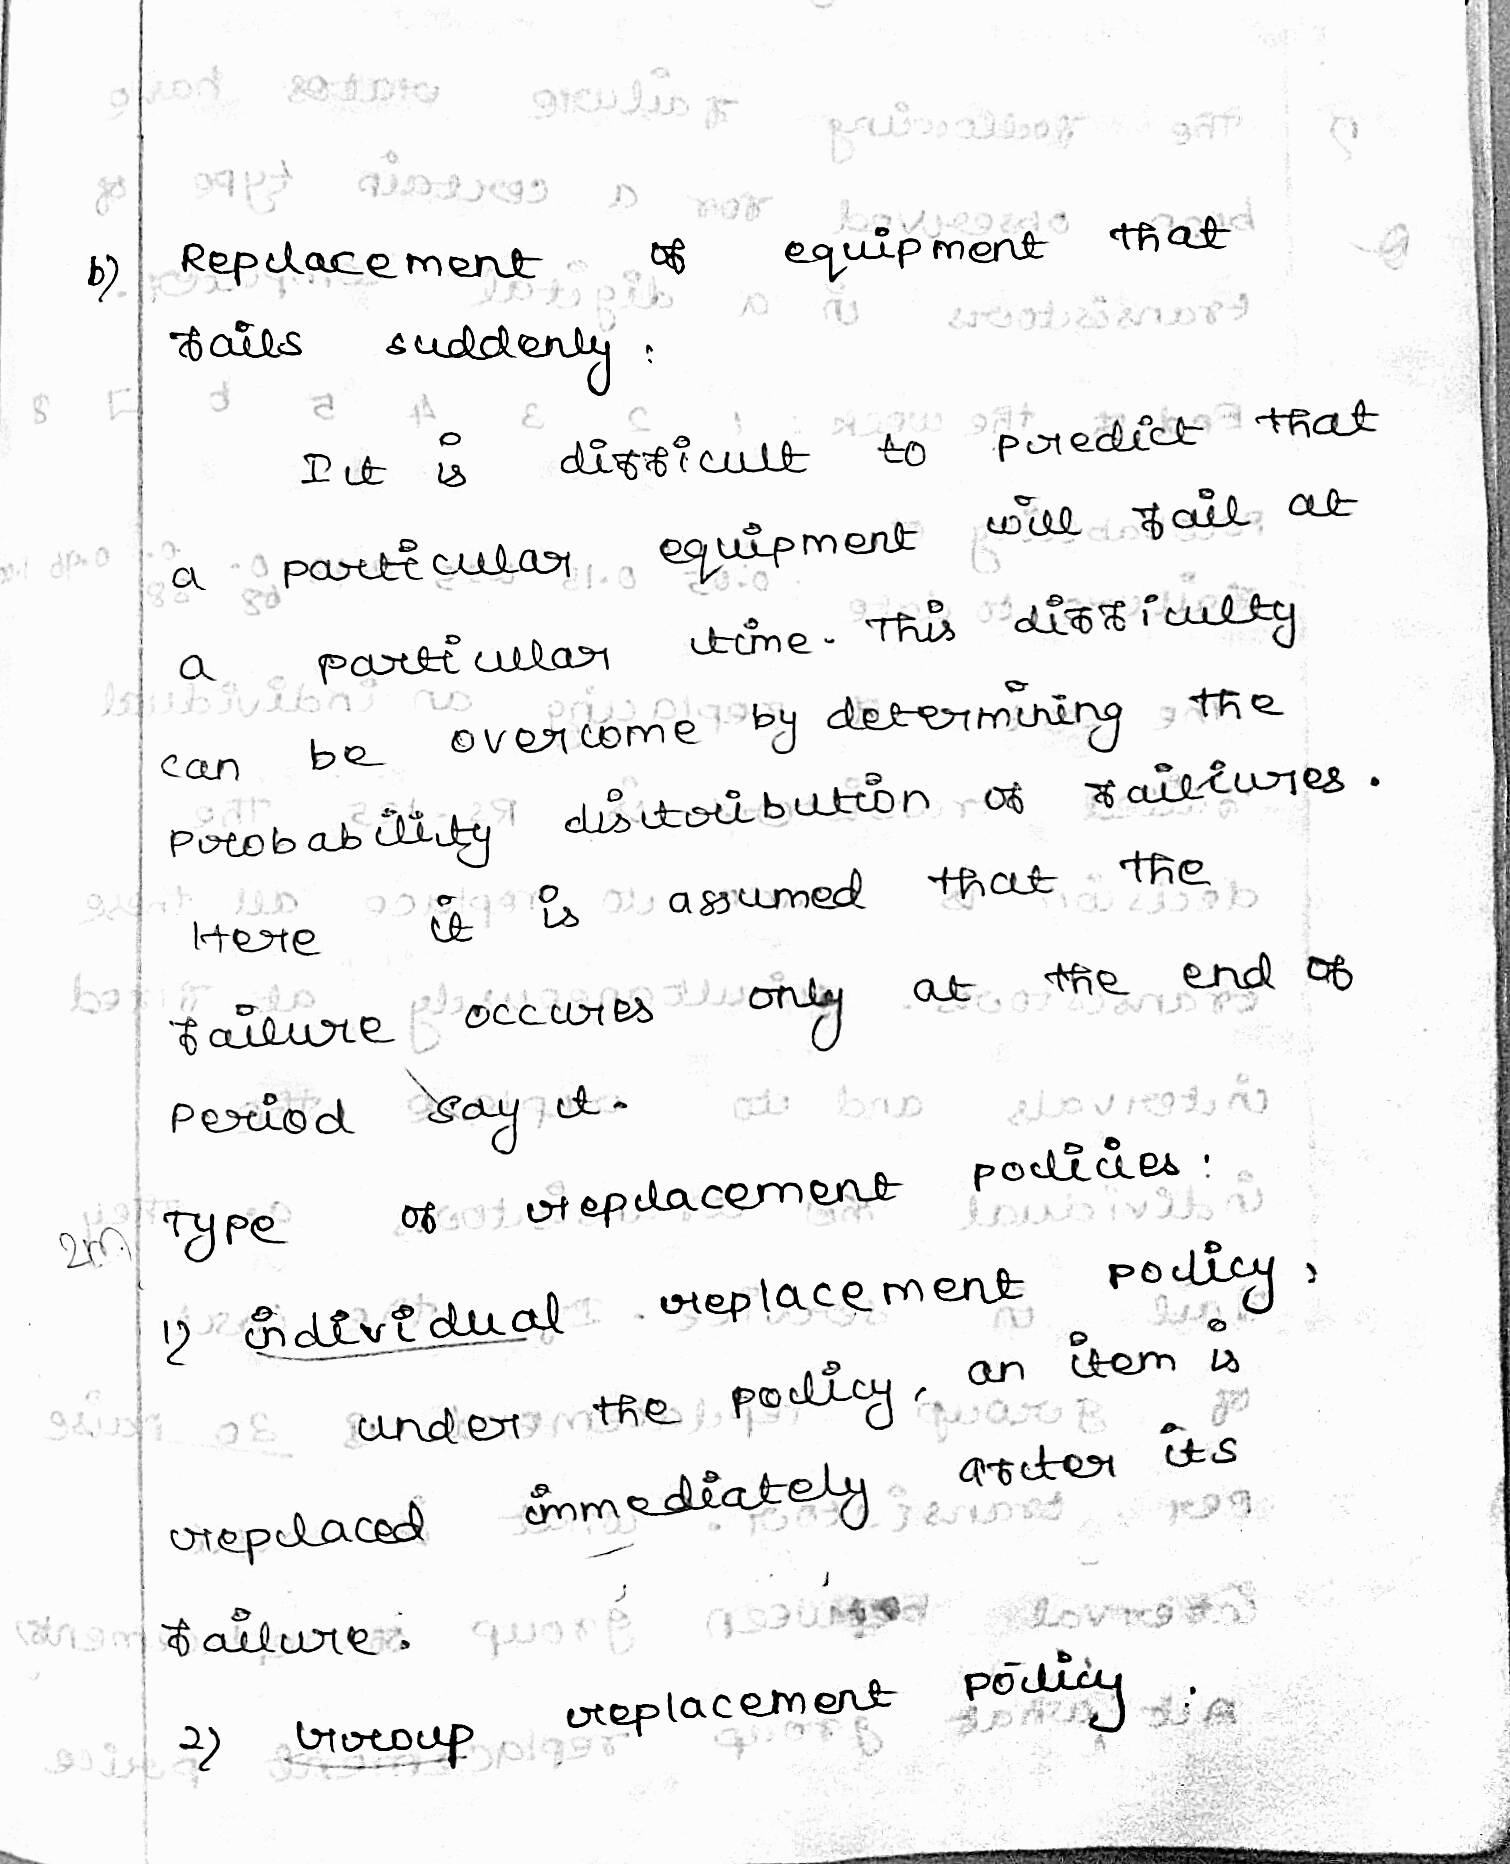 b) Replacement of equipment that
fails suddenly :
It is difficult to predict that
a particular equipment will fail at
a particular time. This difficulty
can be overcome by determining the
Probability distribution of failiures.
Here it is assumed that the
failure occures only at the end of
Period say t.
2m Type of replacement policies :
1) individual replacement policy,
under the policy, an item is
replaced immediately after its
failure.
2) Group replacement policy :